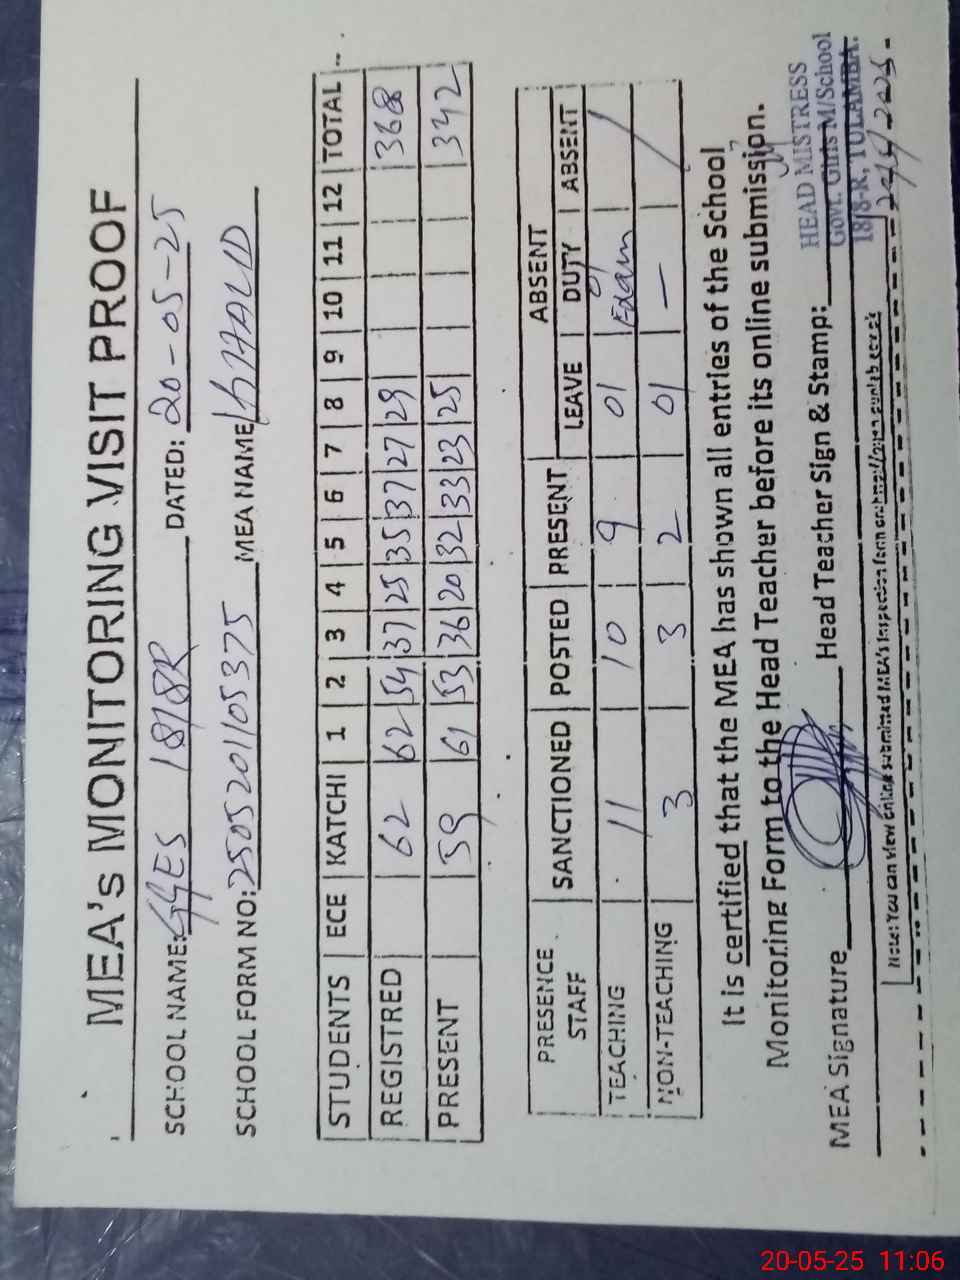 MEA's MONITORING VISIT PROOF
SCHOOL NAME: GGES 18/8R DATED: 20-05-25
SCHOOL FORM NO: 2505201105375 MEA NAME KHALID
STUDENTS ECE KATCHI 1 2 3 4 5 6 7 8 9 10 11 12 TOTAL
REGISTRED 62 62 54 37 25 35 37 27 29 368
PRESENT 59 61 53 36 20 32 33 23 25 342
PRESENCE STAFF SANCTIONED POSTED PRESENT ABSENT
LEAVE DUTY ABSENT
TEACHING 11 10 9 01 Exam /
NON-TEACHING 3 3 2 01 — /
It is certified that the MEA has shown all entries of the School
Monitoring Form to the Head Teacher before its online submission.
MEA Signature Head Teacher Sign & Stamp:
HEAD MISTRESS
Govt. Girls M/School
18/8-R, TULAMBA.
Note: You can view online submitted MEA's inspection form on
20-05-25 11:06